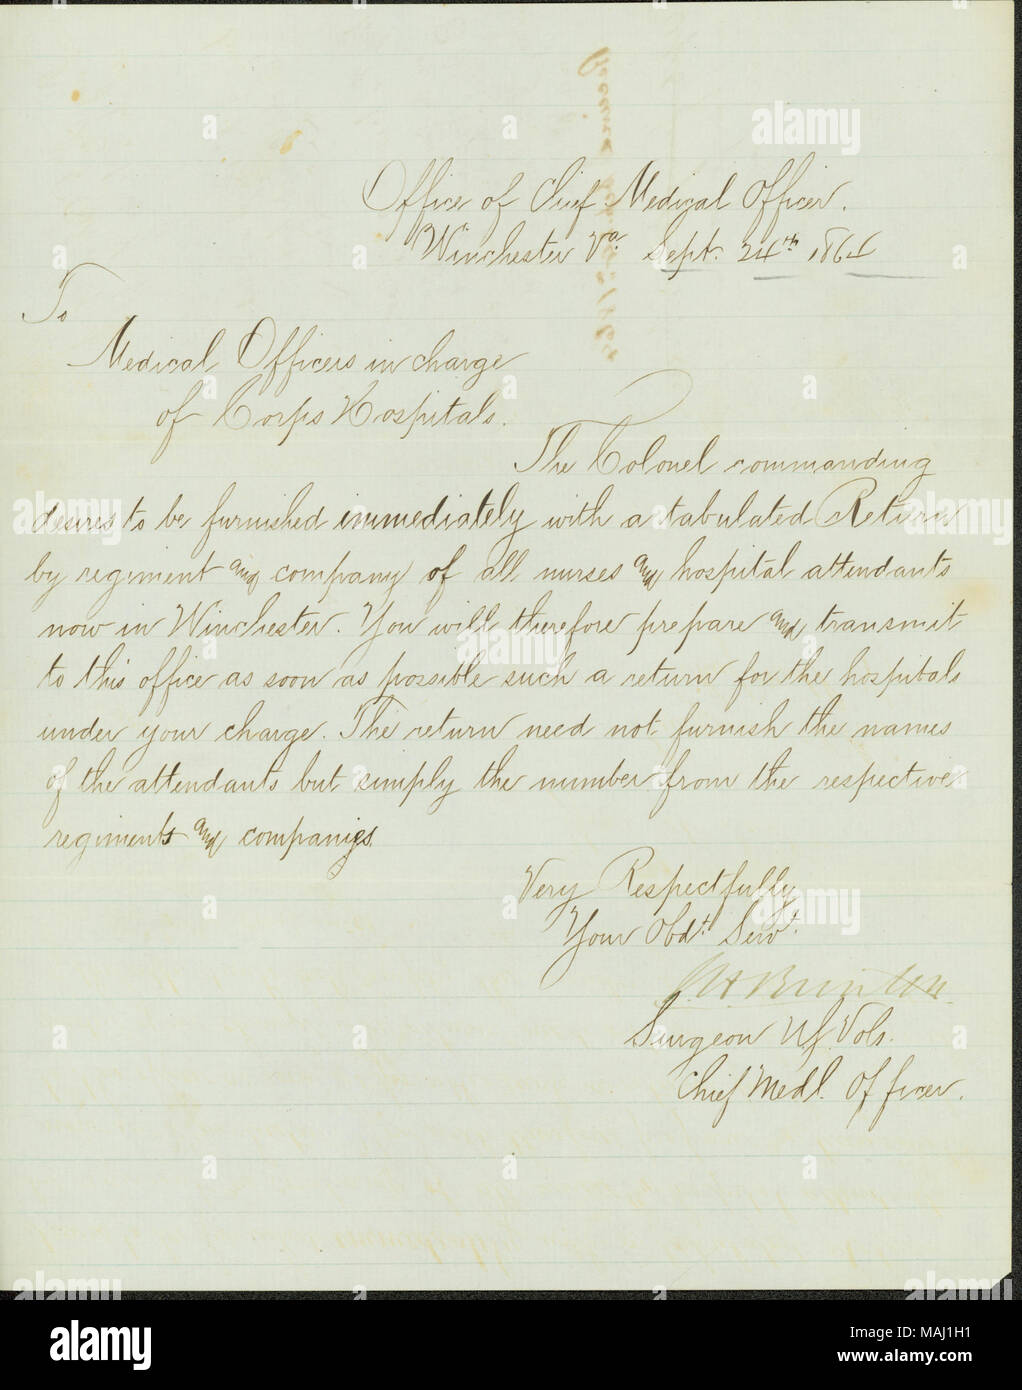 Office of Chief Medical Officer.
Winchester Va. Sept. 24th 1864
To
Medical Officers in charge
of Corps Hospitals.
The Colonel commanding
desires to be furnished immediately with a tabulated Return
by regiment and company of all nurses and hospital attendants
now in Winchester. You will therefore prepare and transmit
to this office as soon as possible such a return for the hospitals
under your charge. The return need not furnish the names
of the attendants but simply the number from the respective
regiments and companies.
Very Respectfully
Your Obdt. Servt.
J.H. Brinton
Surgeon U.S. Vols.
Chief Medl. Officer.
alamy
Image ID: MAJ1H1
www.alamy.com